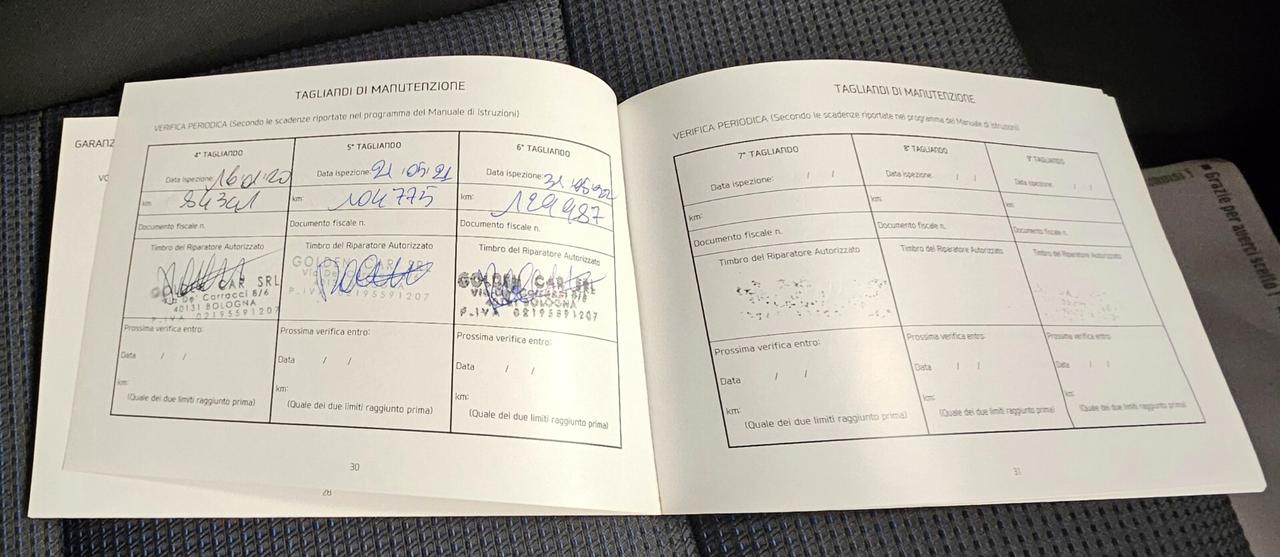 GARANZ
TAGLIANDI DI MANUTENZIONE
VERIFICA PERIODICA (Secondo le scadenze riportate nel programma del Manuale di Istruzioni)
4° TAGLIANDO
Data ispezione: 16/01/20
km: 84391
Documento fiscale n.
Timbro del Riparatore Autorizzato
GOLDEN CAR SRL
Via De' Carracci 8/6
40131 BOLOGNA
P.IVA 02195591207
Prossima verifica entro:
Data / /
km:
(Quale dei due limiti raggiunto prima)
5° TAGLIANDO
Data ispezione: 21/05/21
km: 104775
Documento fiscale n.
Timbro del Riparatore Autorizzato
GOLDEN CAR SRL
Via De'
P.IVA 02195591207
Prossima verifica entro:
Data / /
km:
(Quale dei due limiti raggiunto prima)
6° TAGLIANDO
Data ispezione: 31/05/22
km: 129487
Documento fiscale n.
Timbro del Riparatore Autorizzato
GOLDEN CAR SRL
BOLOGNA
P.IVA 02195591207
Prossima verifica entro:
Data / /
km:
(Quale dei due limiti raggiunto prima)
30
TAGLIANDI DI MANUTENZIONE
VERIFICA PERIODICA (Secondo le scadenze riportate nel programma del Manuale di Istruzioni)
7° TAGLIANDO
Data ispezione: / /
km:
Documento fiscale n.
Timbro del Riparatore Autorizzato
Prossima verifica entro:
Data / /
km:
(Quale dei due limiti raggiunto prima)
8° TAGLIANDO
Data ispezione: / /
km:
Documento fiscale n.
Timbro del Riparatore Autorizzato
Prossima verifica entro:
Data / /
km:
(Quale dei due limiti raggiunto prima)
9° TAGLIANDO
Data ispezione: / /
km:
Documento fiscale n.
Timbro del Riparatore Autorizzato
Prossima verifica entro:
Data / /
km:
(Quale dei due limiti raggiunto prima)
31
Grazie per averti scelto !